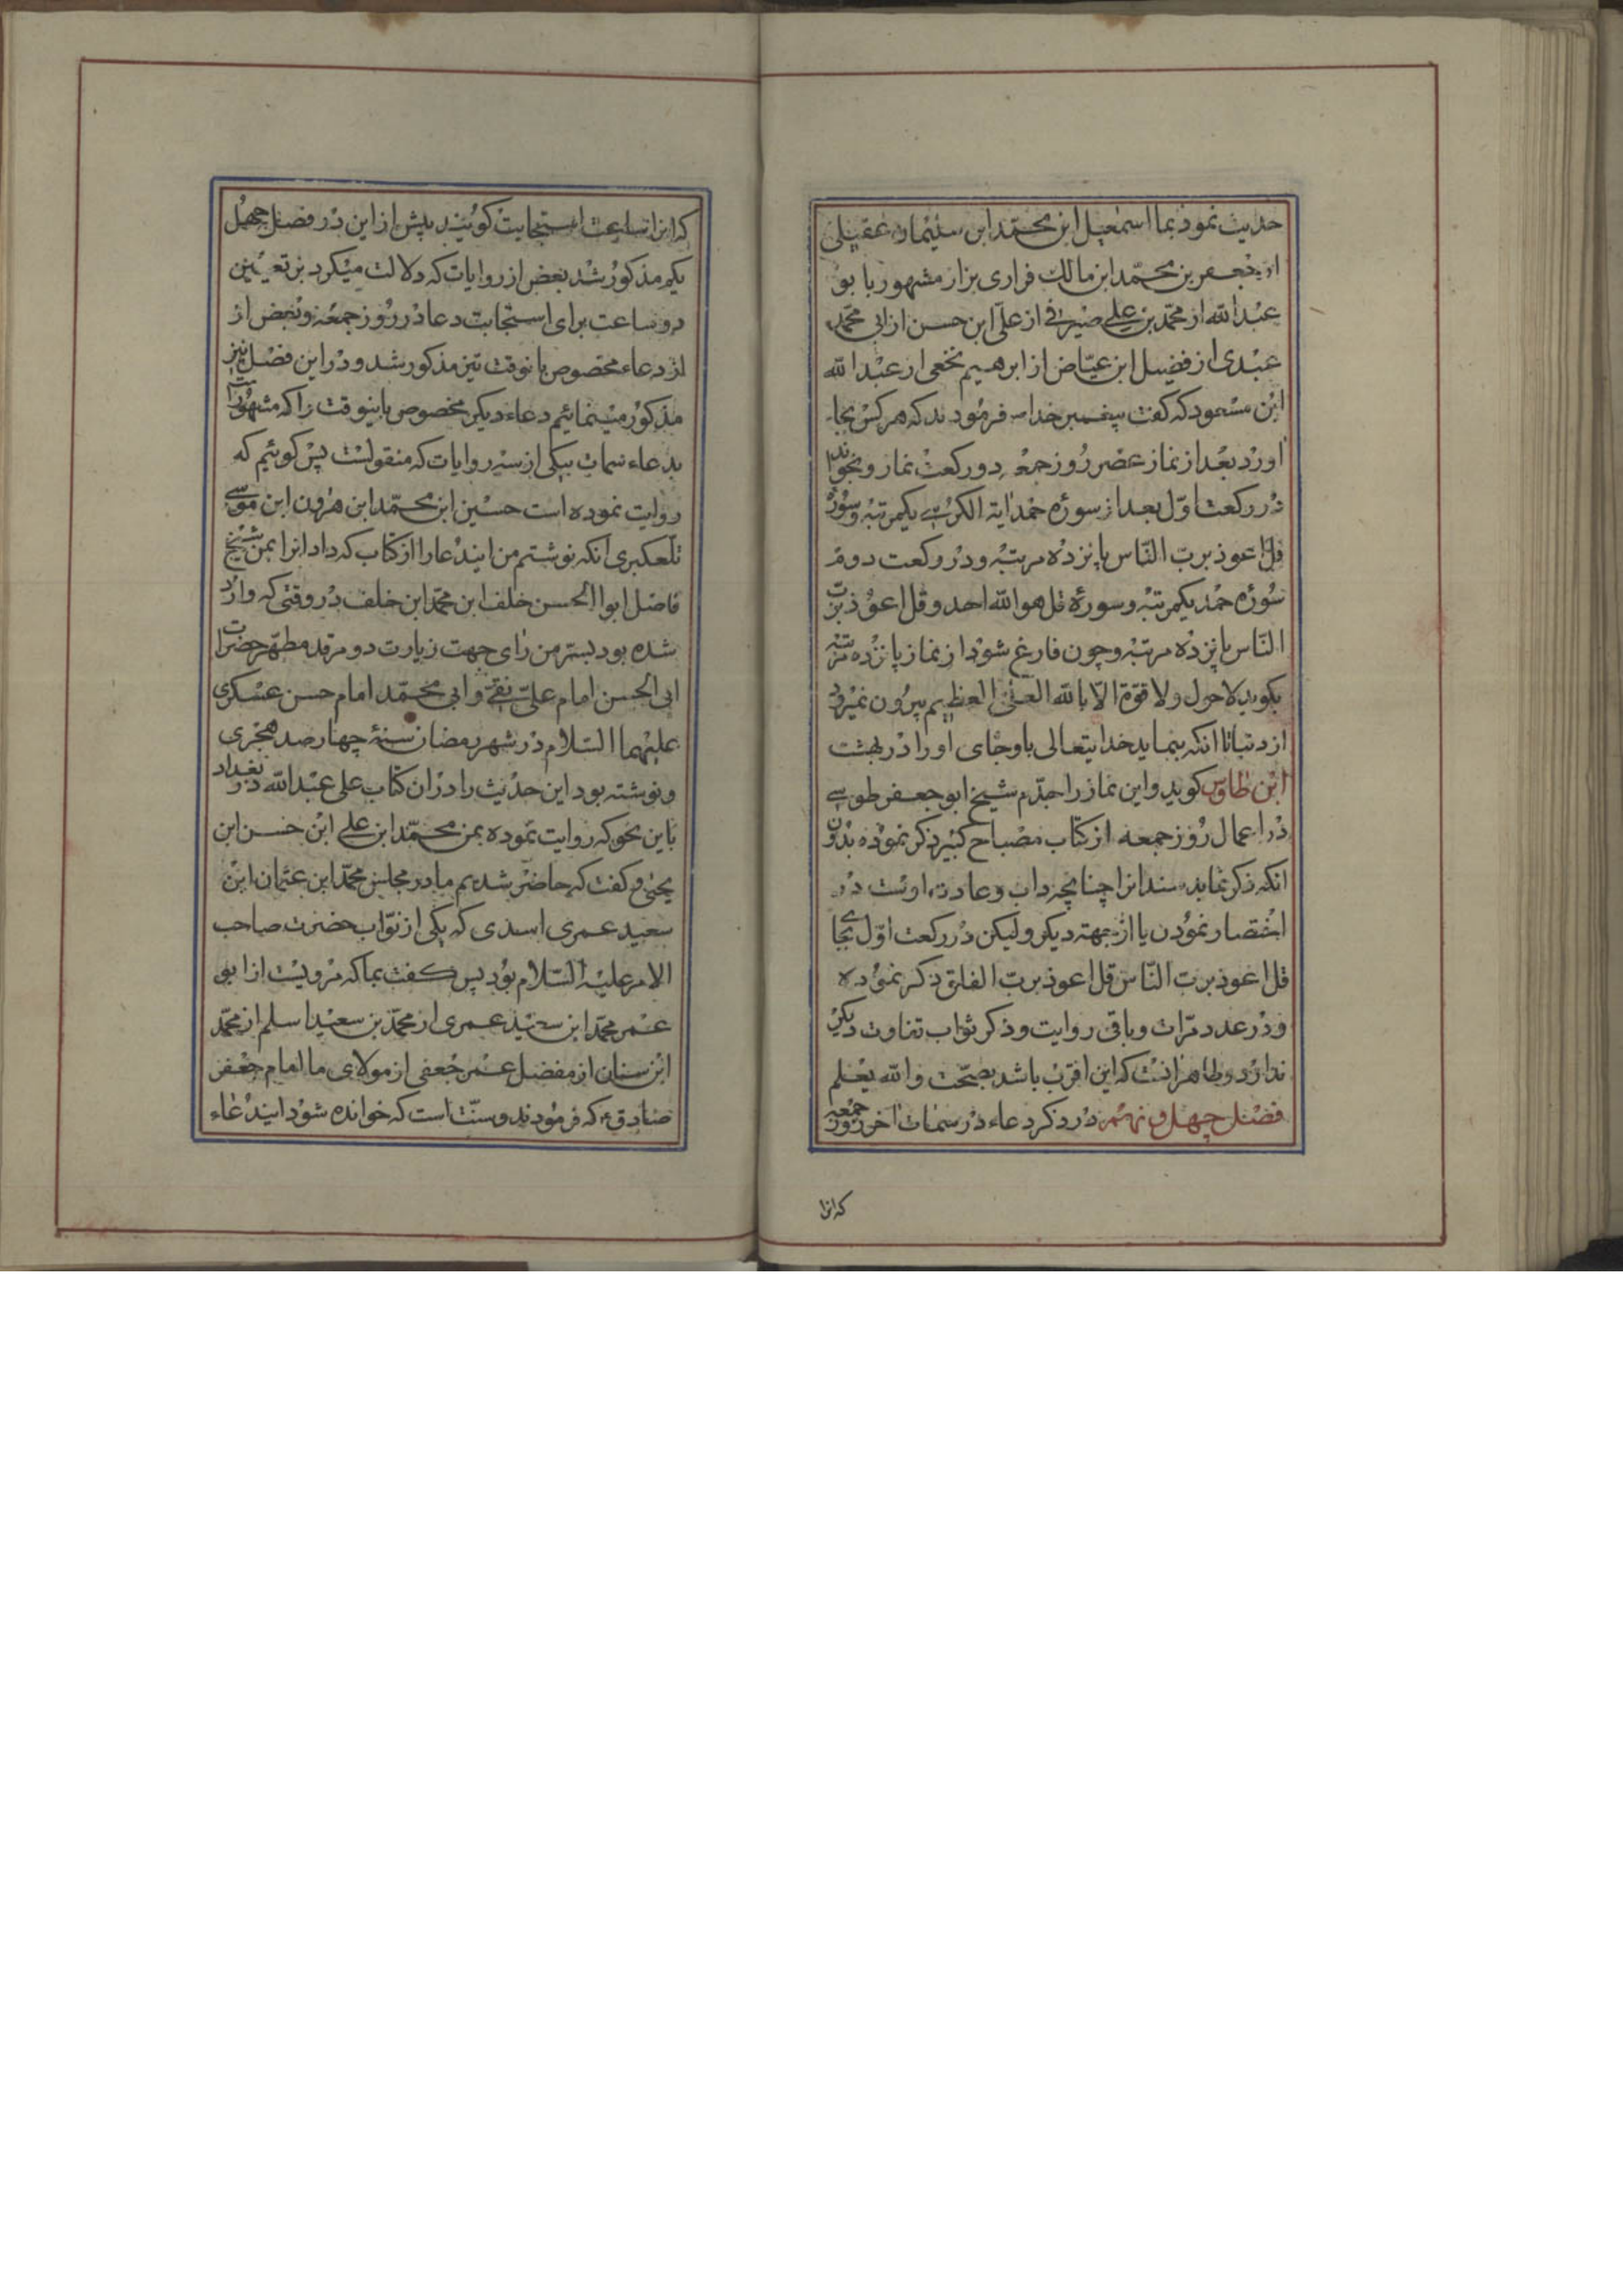 حدیث نمود بما اسمعیل ابن محمّد ابن سلیمان عقیلی
از جعفر بن محمّد ابن مالك فراری بزاز مشهور با بو
عبد الله از محمّد بن علی صیرفی از علی ابن حسن از ابی محمّد
عبدی از فضیل ابن عیّاض از ابرهیم نخعی از عبد الله
ابن مسعود که کفت پیغمبر خدا ص فرمودند که هر کس بجا
اورد بعد از نماز عصر روز جمعه دو رکعت نماز و بخواند
در رکعت اوّل بعد از سوره حمد ایة الکرسی یکمرتبه و سورهٔ
قل اعوذ برب النّاس پانزده مرتبه و در رکعت دوم
سوره حمد یکمرتبه و سورهٔ قل هو الله احد و قل اعوذ بربّ
النّاس پانزده مرتبه و چون فارغ شود از نماز پانزده مرتبه
بکوید لا حول و لا قوّة الّا بالله العلیّ العظیم بیرون نمیرود
از دنیا تا انکه بنماید خدایتعالی باو جای او را در بهشت
ابن طاوس کوید و این نماز را جدّم شیخ ابو جعفر طوسی
در اعمال روز جمعه از کتاب مصباح کبیر ذکر نموده بدون
انکه ذکر نماید سند انرا چنانچه داب و عادت اوست در
اختصار نمودن یا از جهته دیکر و لیکن در رکعت اوّل بجای
قل اعوذ بربّ النّاس قل اعوذ بربّ الفلق ذکر نموده
و در عدد مرّات و باقی روایت و ذکر ثواب تفاوت دیکر
ندارد و ظاهر انست که این اقرب باشد بصحّت و الله یعلم
فصل چهل و نهم در ذکر دعاء در سمات اخر روز جمعه
که انرا
که انرا ساعت استجابت کویند پیش از این در فصل چهل
یکم مذکور شد بعض از روایات که دلالت میکرد بر تعیین
دو ساعت برای استجابت دعا در روز جمعه و بعض از
از دعاء مخصوص بانوقت نیز مذکور شد و در این فصل نیز
مذکور مینمائیم دعاء دیکر مخصوص باینوقت را که مشهور است
بدعاء سمات بیکی از سه روایات که منقولست پس کوئیم که
روایت نموده است حسین ابن محمّد ابن هرون ابن موسی
تلعکبری انکه نوشتم من ایندعا را از کتاب که داد انرا بمن شیخ
فاضل ابو الحسن خلف ابن محمّد ابن خلف در وقتی که وارد
شده بود بسترمن رای جهت زیارت دو مرقد مطهر حضرت
ابی الحسن امام علی نقی و ابی محمّد امام حسن عسکری
علیهما السّلام در شهر رمضان سنهٔ چهار صد هجری
و نوشته بود این حدیث را در ان کتاب علی عبد الله در بغداد
باین نحو که روایت نموده بمن محمّد ابن علی ابن حسن ابن
یحیی و کفت که حاضر شدیم ما در مجلس محمّد ابن عثمان ابن
سعید عمری اسدی که یکی از نوّاب حضرت صاحب
الامر علیه السّلام بود پس کفت بما که مرویست از ابو
عمر محمّد ابن سعید عمری از محمّد بن سعید اسلم از محمّد
ابن سنان از مفضل عمر جعفی از مولای ما امام جعفر
صادق ع که فرمودند و سنّت است که خوانده شود ایندعاء